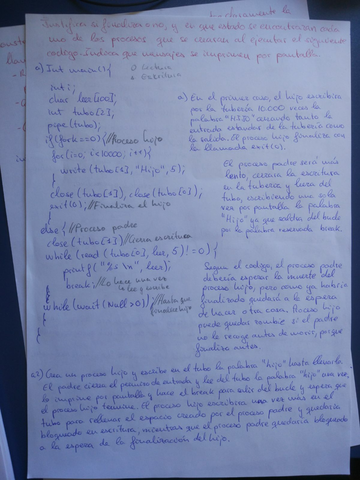 Justifica si finaliza o no, y en que estado se encuentran cada
uno de los procesos que se crearian al ejecutar el siguiente
codigo. Indica que mensajes se imprimen por pantalla
a) Int main() {
0 Lectura
1 Escritura
int i;
char leer[100];
int tubo[2];
pipe(tubo);
if(fork==0){ //Proceso hijo
for(i=0; i<10000; i++){
write(tubo[1], "Hijo", 5);
}
close(tubo[1]); close(tubo[0]);
exit(0); //Finaliza el hijo
}
else { //Proceso padre
close(tubo[1]) //cierra escritura
while(read(tubo[0], leer, 5)!=0){
printf("%s \n", leer);
break;
}
while(wait(Null>0);
}
}
a) En el primer caso, el hijo escribira
por la tuberia 10.000 veces la
palabra "HIJO" cerrando tanto la
entrada estandar de la tuberia como
la salida. El proceso hijo finaliza con
la llamada exit(0).
El proceso padre será más
lento, cerrara la escritura
en la tuberia y leera del
tubo, escribiendo una sola
vez por pantalla la palabra
"Hijo" ya que saldra del bucle
por la palabra reservada break.
Segun el codigo, el proceso padre
deberia esperar la muerte del
proceso hijo, pero como ya habria
finalizado quedaria a la espera
de hacer otra cosa. Proceso hijo
puede quedar zombie si el padre
no le recoge antes de morir, por que
finaliza antes.
a2) Crea un proceso hijo y escribe en el tubo la palabra "hijo" hasta llenarlo.
El padre cierra el permiso de entrada y lee del tubo la palabra "hijo" una vez,
lo imprime por pantalla y hace el break para salir del bucle y espera que
el proceso hijo termine. El proceso hijo escribira una vez más en el
tubo para rellenar el espacio creado por el proceso padre y quedaria
bloqueado en escritura, mientras que el proceso padre quedaria bloqueado
a la espera de la finalización del hijo.